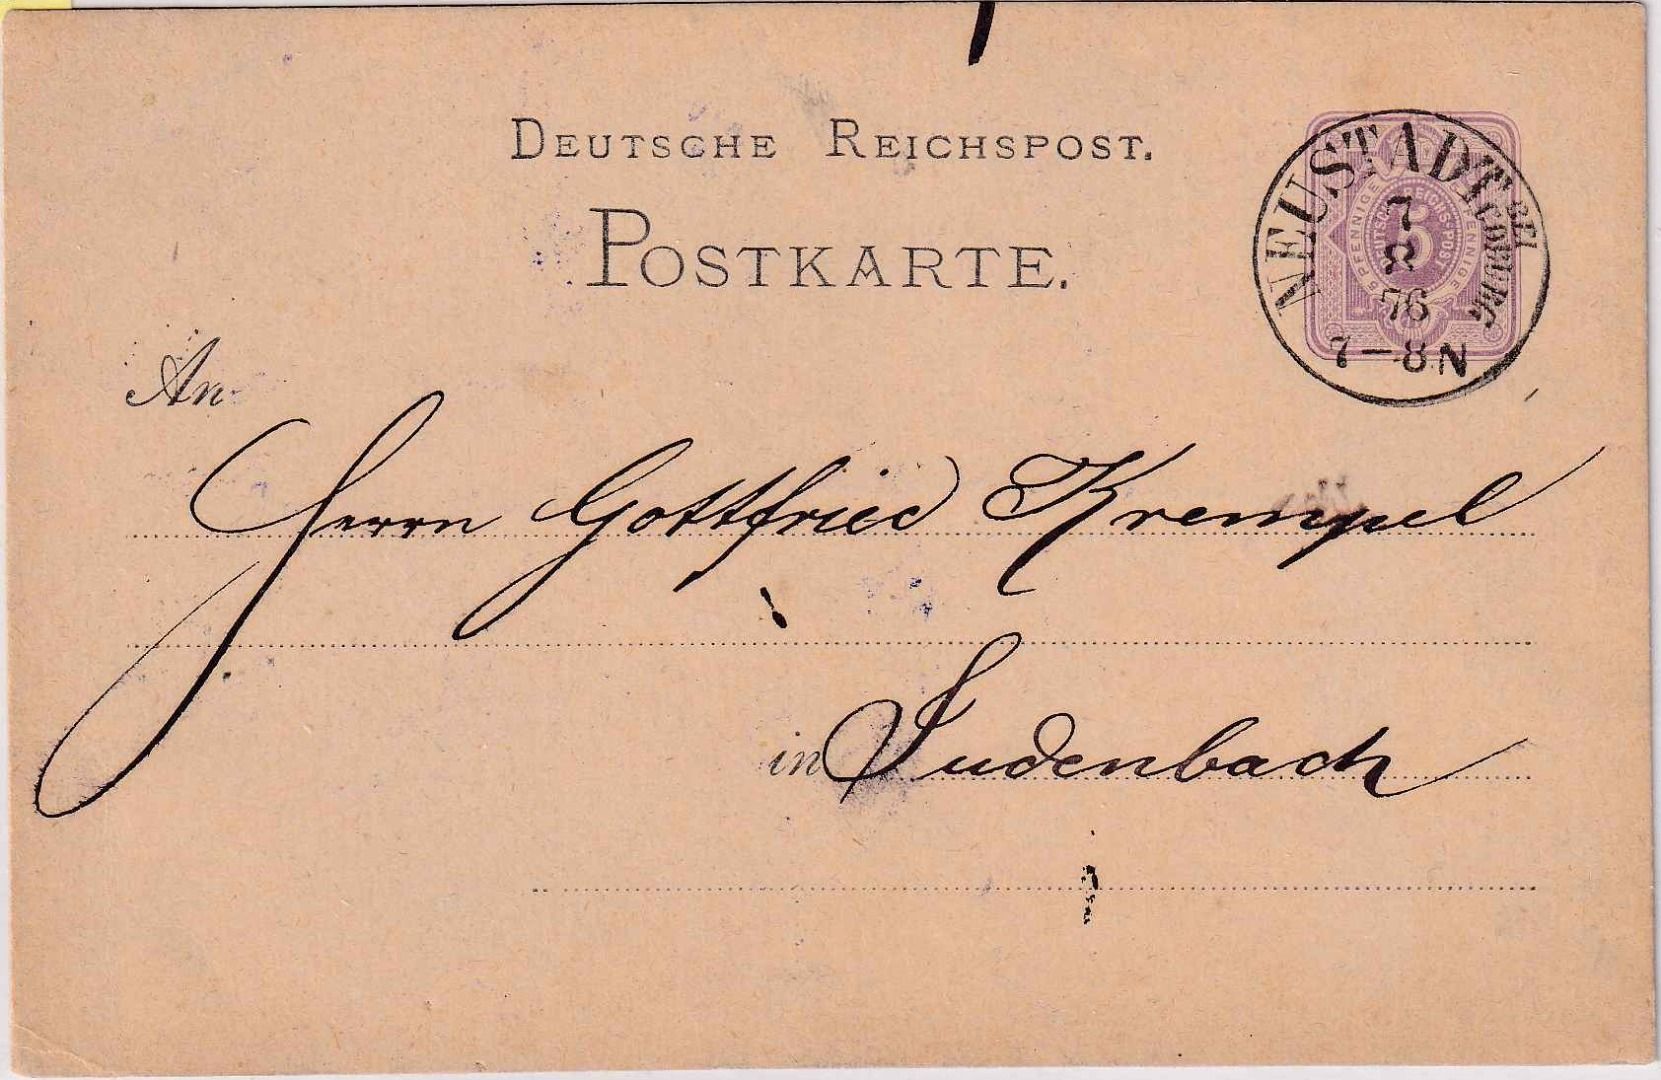 DEUTSCHE REICHSPOST.
POSTKARTE.
NEUSTADT BEI COBURG
7
8
76
7-8 N
5 PFENNIGE 5 PFENNIGE
DEUTSCHE REICHS-POST
5
An
Herrn Gottfried Krempel
in Judenbach